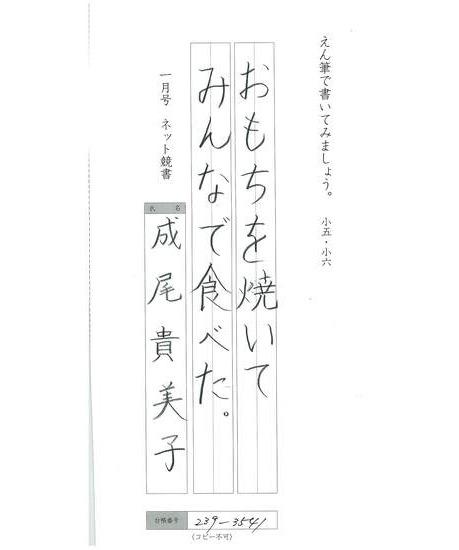 えん筆で書いてみましょう。 小五・小六
おもちを焼いて
みんなで食べた。
一月号 ネット競書
氏名
成尾貴美子
台帳番号 239-3541
(コピー不可)